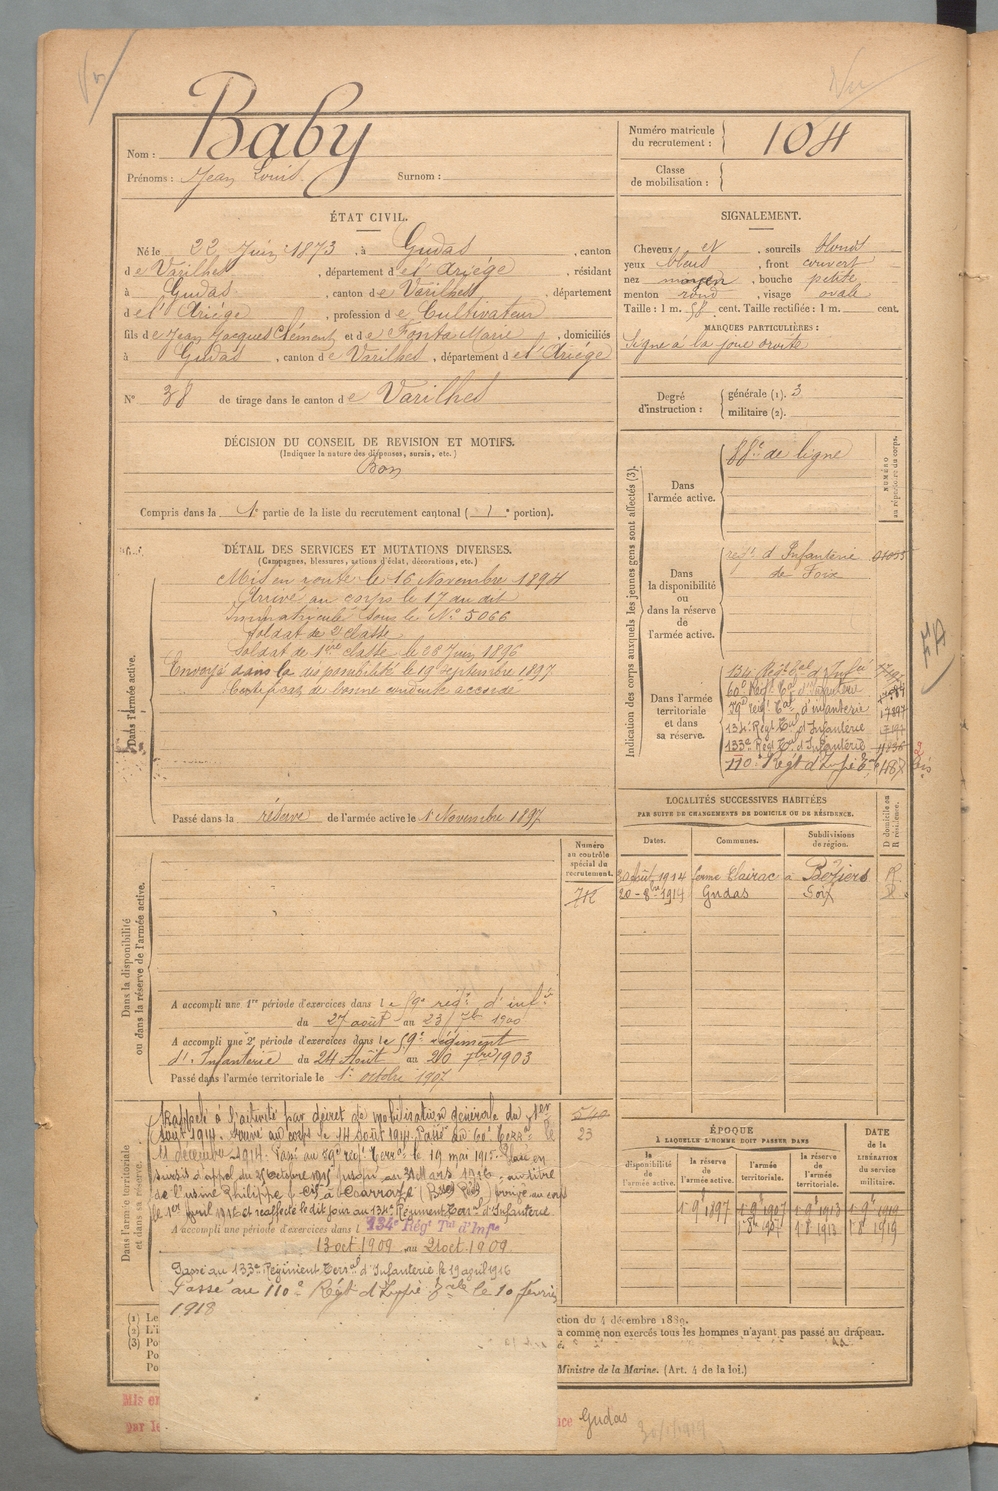 Baby
Nom :
Prénoms : Jean Louis
Surnom :
Numéro matricule du recrutement : 104
Classe de mobilisation :
ÉTAT CIVIL.
Né le 22 Juin 1873, à Gudas, canton
de Varilhes, département de l'Ariège, résidant
à Gudas, canton de Varilhes, département
de l'Ariège, profession de Cultivateur
fils de Jean Jacques Clément et de Fonta Marie, domiciliés
à Gudas, canton de Varilhes, département de l'Ariège
N° 38 de tirage dans le canton de Varilhes
SIGNALEMENT.
Cheveux et, sourcils blonds
yeux bleus, front couvert
nez moyen, bouche petite
menton rond, visage ovale
Taille : 1 m. 58 cent. Taille rectifiée : 1 m. cent.
MARQUES PARTICULIÈRES :
Signe à la joue droite
Degré d'instruction :
générale (1). 3
militaire (2).
DÉCISION DU CONSEIL DE REVISION ET MOTIFS.
(Indiquer la nature des dispenses, sursis, etc.)
Bon
Compris dans la 1e partie de la liste du recrutement cantonal (1e portion).
DÉTAIL DES SERVICES ET MUTATIONS DIVERSES.
(Campagnes, blessures, actions d'éclat, décorations, etc.)
Dans l'armée active.
Mis en route le 16 Novembre 1894
Arrivé au corps le 17 du dit
Immatriculé sous le N° 5066
Soldat de 2e classe
Soldat de 1re classe le 28 Juin 1896
Envoyé dans la disponibilité le 19 Septembre 1897
Certificat de bonne conduite accordé
Passé dans la réserve de l'armée active le 1 Novembre 1897
Indication des corps auxquels les jeunes gens sont affectés (3).
NUMÉRO au répertoire du corps.
Dans l'armée active.
88e de ligne
Dans la disponibilité ou dans la réserve de l'armée active.
regt d'Infanterie
de Foix
Dans l'armée territoriale et dans sa réserve.
134 Régt d'Infie
60e Régt d'Infanterie
89e régt d'infanterie
134e Régt d'Infanterie
133e Régt d'Infanterie
110e Régt d'Infie
FA
LOCALITÉS SUCCESSIVES HABITÉES
PAR SUITE DE CHANGEMENTS DE DOMICILE OU DE RÉSIDENCE.
Dates.
Communes.
Subdivisions de région.
D domicile ou R résidence.
août 1914 ferme Clairac à Béziers R
1914 Gudas Foix
Numéro au contrôle spécial du recrutement.
Dans la disponibilité ou dans la réserve de l'armée active.
A accompli une 1re période d'exercices dans le 59e régt d'infie
du 27 août au 23 7bre 1900
A accompli une 2e période d'exercices dans le 59e régiment
d'Infanterie du 24 Août au 20 7bre 1903
Passé dans l'armée territoriale le 1er octobre 1907
Dans l'armée territoriale et dans sa réserve.
Rappelé à l'activité par décret de mobilisation générale du 1er
août 1914. Arrivé au corps le 14 août 1914. Passé au 60e Terral le
11 décembre 1914. Passé au 89e régt Terral le 19 mai 1915. Placé en
sursis d'appel du 25 Octobre 1915 jusqu'au 31 Mars 1916 au titre
de l'usine Philippe & Cie à Coarraze
le 1er Avril 1916 et réaffecté le dit jour au 134e Régiment Terral d'Infanterie
A accompli une période d'exercices dans l 134e Régt Tal d'Infie
13 oct 1909 au 21 oct 1909.
Passé au 133e Régiment Terral d'Infanterie le 19 avril 1916
Passé au 110e Régt d'Infie le 10 février
1918
23
ÉPOQUE
À LAQUELLE L'HOMME DOIT PASSER DANS
DATE de la LIBÉRATION du service militaire.
la disponibilité de l'armée active.
la réserve de l'armée active.
l'armée territoriale.
la réserve de l'armée territoriale.
1 9 1897
1 9 1907
1 9 1913
1 9 1919
1 8 1913
1 8 1919
(1) Le
(2) L'i
(3) Po
Po
Po
ction du 4 décembre 1889.
a comme non exercés tous les hommes n'ayant pas passé au drapeau.
Ministre de la Marine. (Art. 4 de la loi.)
Mis en
par le
nce Gudas